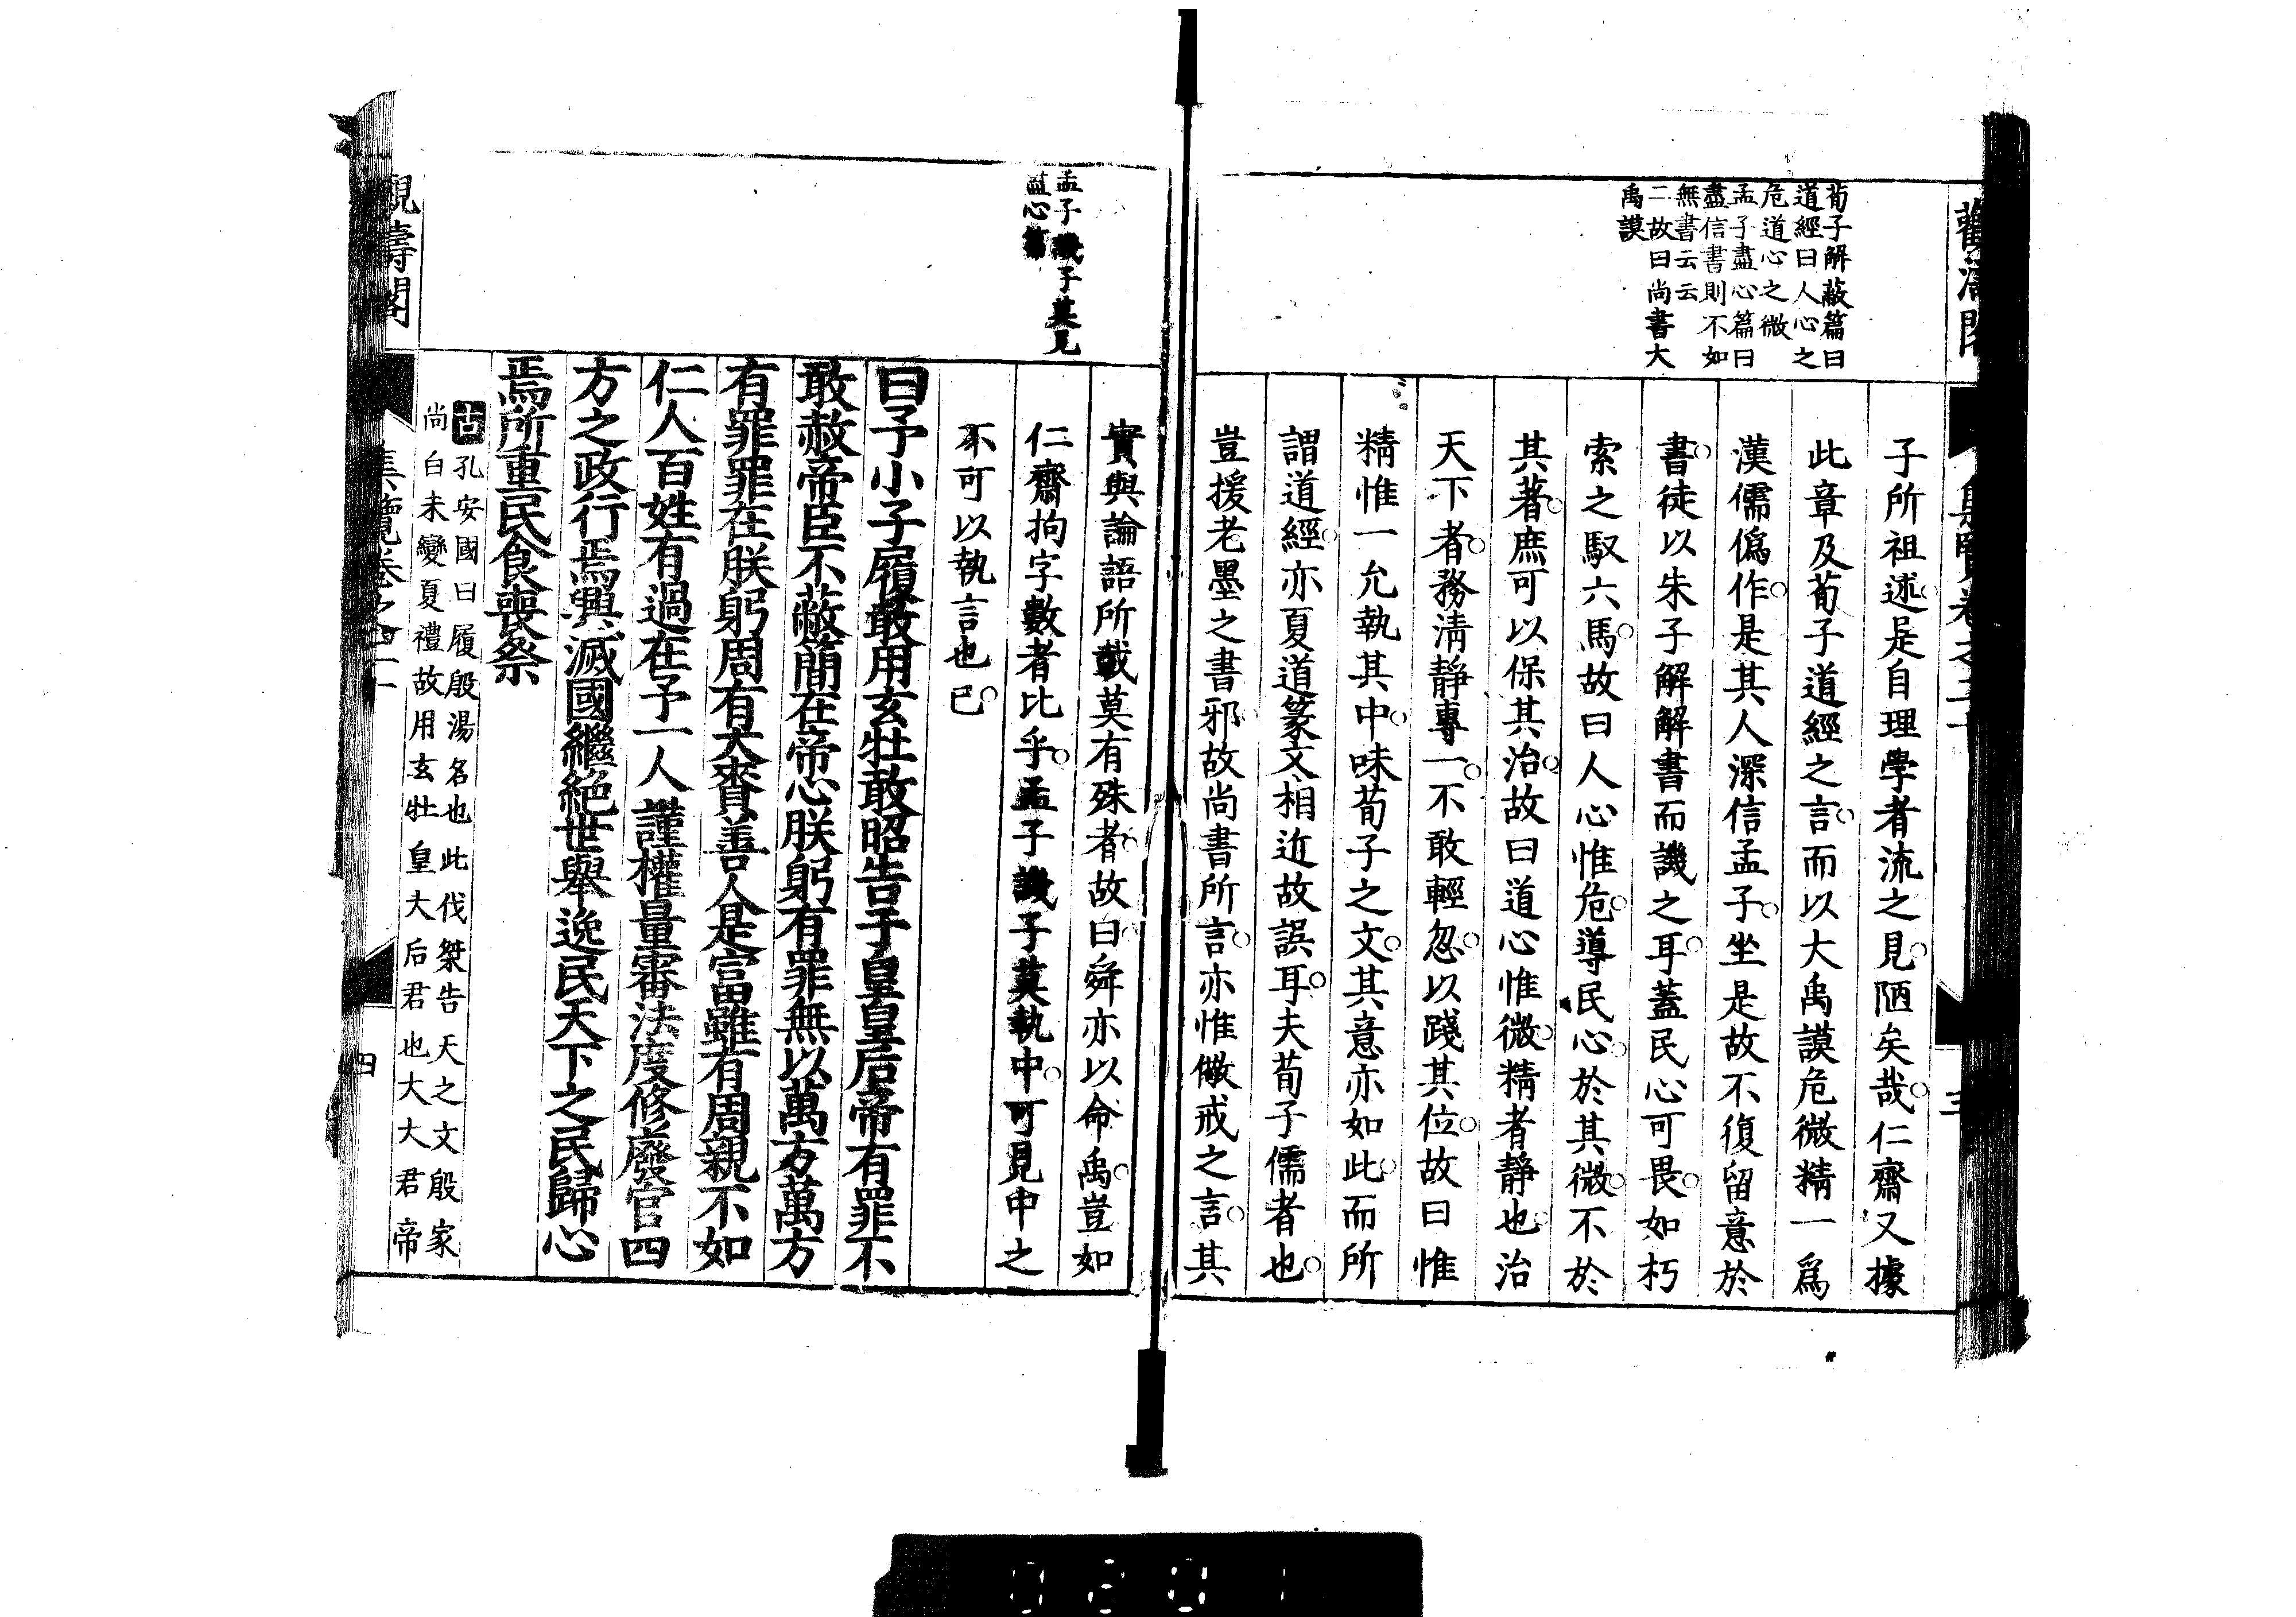 荀子解蔽篇曰
道經曰人心之
危道心之微
孟子盡心篇曰
盡信書則不如
無書云云
二故曰尚書大
禹謨
子所祖述是自理學者流之見陋矣哉仁齋又據
此章及荀子道經之言而以大禹謨危微精一爲
漢儒僞作是其人深信孟子坐是故不復留意於
書徒以朱子解解書而譏之耳蓋民心可畏如朽
索之馭六馬故曰人心惟危導民心於其微不於
其著庶可以保其治故曰道心惟微精者静也治
天下者務淸静專一不敢輕忽以踐其位故曰惟
精惟一允執其中味荀子之文其意亦如此而所
謂道經亦夏道篆文相近故誤耳夫荀子儒者也
豈援老墨之書邪故尚書所言亦惟儆戒之言其
孟子譏子莫見
盡心篇
實與論語所載莫有殊者故曰舜亦以命禹豈如
仁齋拘字數者比乎孟子譏子莫執中可見中之
不可以執言也已
曰予小子履敢用玄牡敢昭告于皇皇后帝有罪不
敢赦帝臣不蔽簡在帝心朕躬有罪無以萬方萬方
有罪罪在朕躬周有大賚善人是富雖有周親不如
仁人百姓有過在予一人謹權量審法度修廢官四
方之政行焉興滅國繼絕世舉逸民天下之民歸心
焉所重民食喪祭
古孔安國曰履殷湯名也此伐桀告天之文殷家
尚白未變夏禮故用玄牡皇大后君也大大君帝
集覽卷之二十
四
觀濤閣